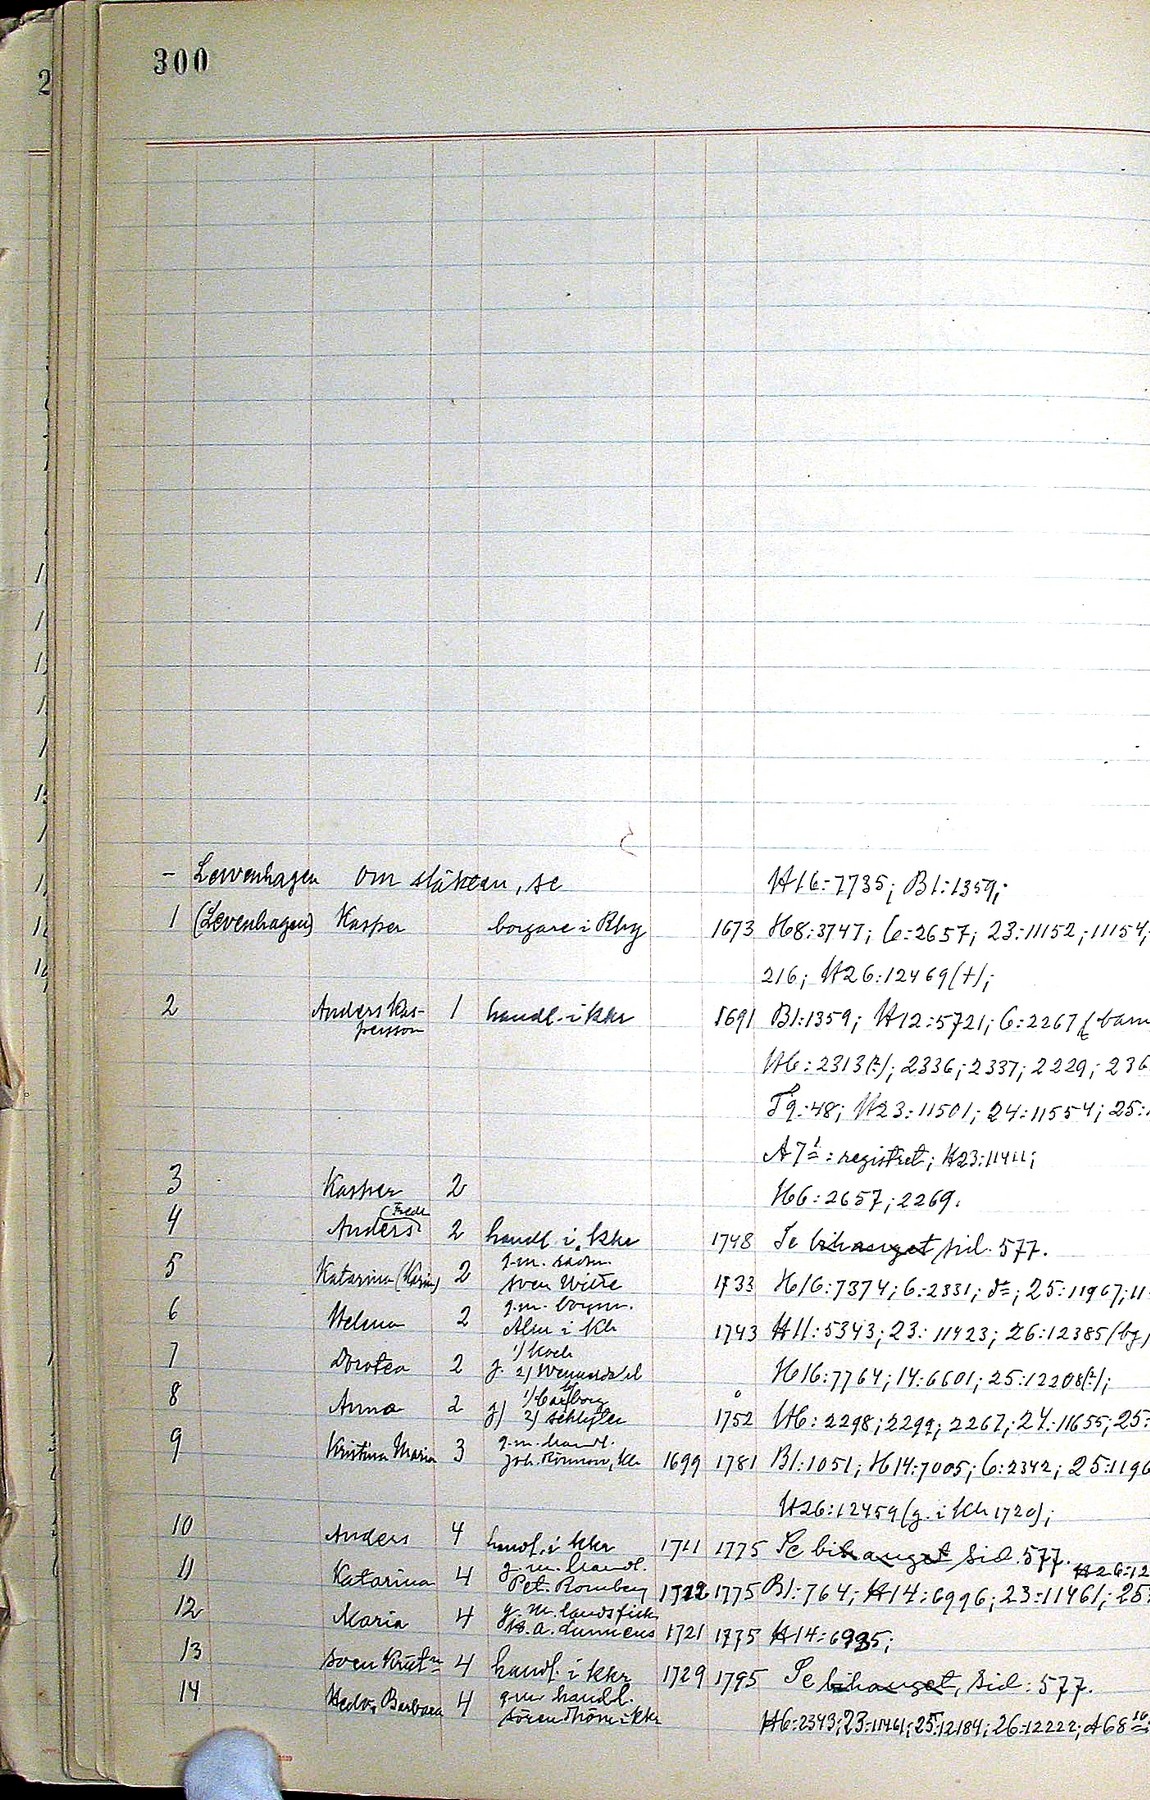 300
– Levenhagen om släkten, se H16:7735; B1:1359;
1 (Levenhagen) Kasper borgare i Rby 1673 H8:3747; 6:2657; 23:11152; 11154;
216; H26:12469(+);
2 Anders Kas- 1 handl. i Kkr 1691 B1:1359; H12:5721; 6:2267 (barn
persson
H6:2313(?); 2336; 2337; 2229; 236
T9:48; H23:11501; 24:11554; 25:
A7 1: registret; H23:11411;
3 Kasper 2 H6:2657; 2269.
(Fredr
4 Anders) 2 handl. i Kkr 1748 Se bihanget sid. 577.
g.m. rådm.
5 Katarina (Karin) 2 Sven Witte 1733 H16:7374; 6:2331; 25:11967; 11
g.m. borgm.
6 Helena 2 Alm i Kh 1743 H11:5343; 23:11423; 26:12385 (bg)
1) Koch
7 Dorotea 2 g. 2) H16:7764; 14:6601; 25:12208(?);
8 Anna 2 g) 1) Carlberg
2) Schlyter 1752 H6:2298; 2299; 2267; 24:11655; 25:
g.m. handl.
9 Kristina Maria 3 Joh. Rönnow, Kh 1699 1781 B1:1051; H14:7005; 6:2342; 25:1196
H26:12459 (g. i Kh 1720);
10 Anders 4 handl. i Kkr 1711 1775 Se bihanget, sid. 577.
H26:12
g.m. handl.
11 Katarina 4 Pet. Romberg 1712 1775 B1:764; H14:6996; 23:11461; 25:
g.m. landsfisk.
12 Maria 4 1721 1775 H14:6985;
13 Sven Krist:n 4 handl. i Kkr 1729 1795 Se bihanget, sid: 577.
14 Hedv. Barbara 4 g.m. handl.
Sören Thöm i Kkr H6:2343; 23:11461; 25:12184; 26:12222; A68 16: